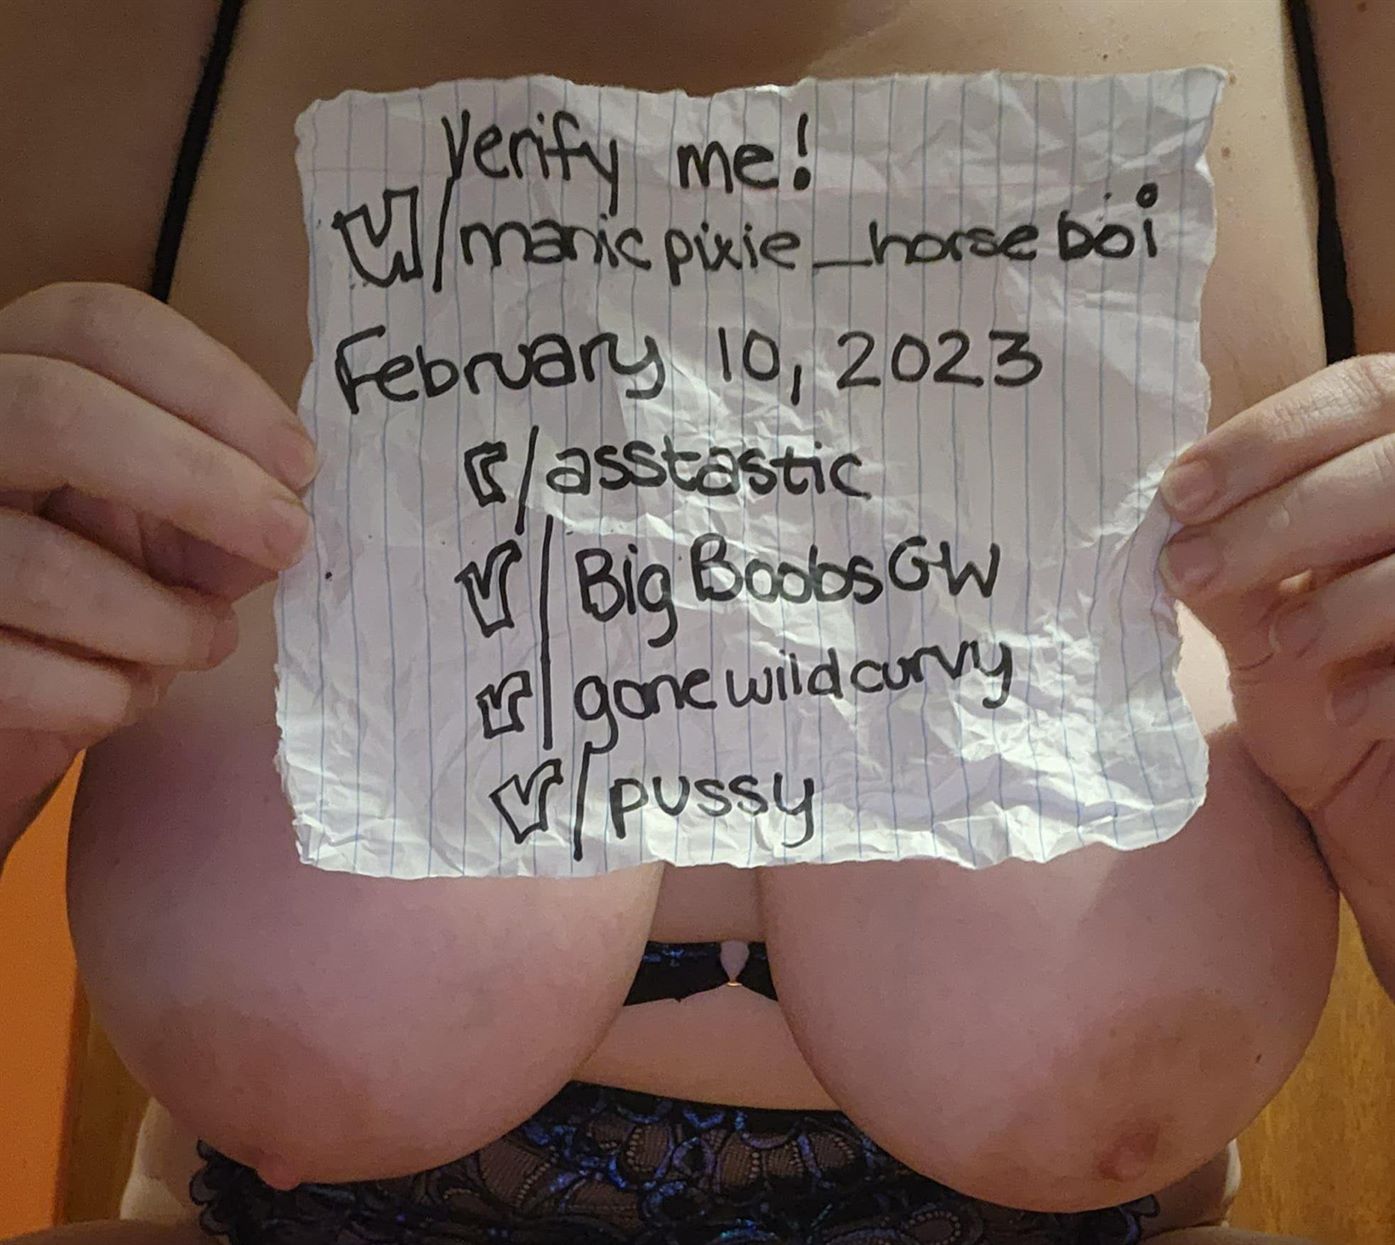 Verify me!
u/manicpixie_horseboi
February 10, 2023
r/asstastic
r/BigBoobsGW
r/gonewildcurvy
r/pussy